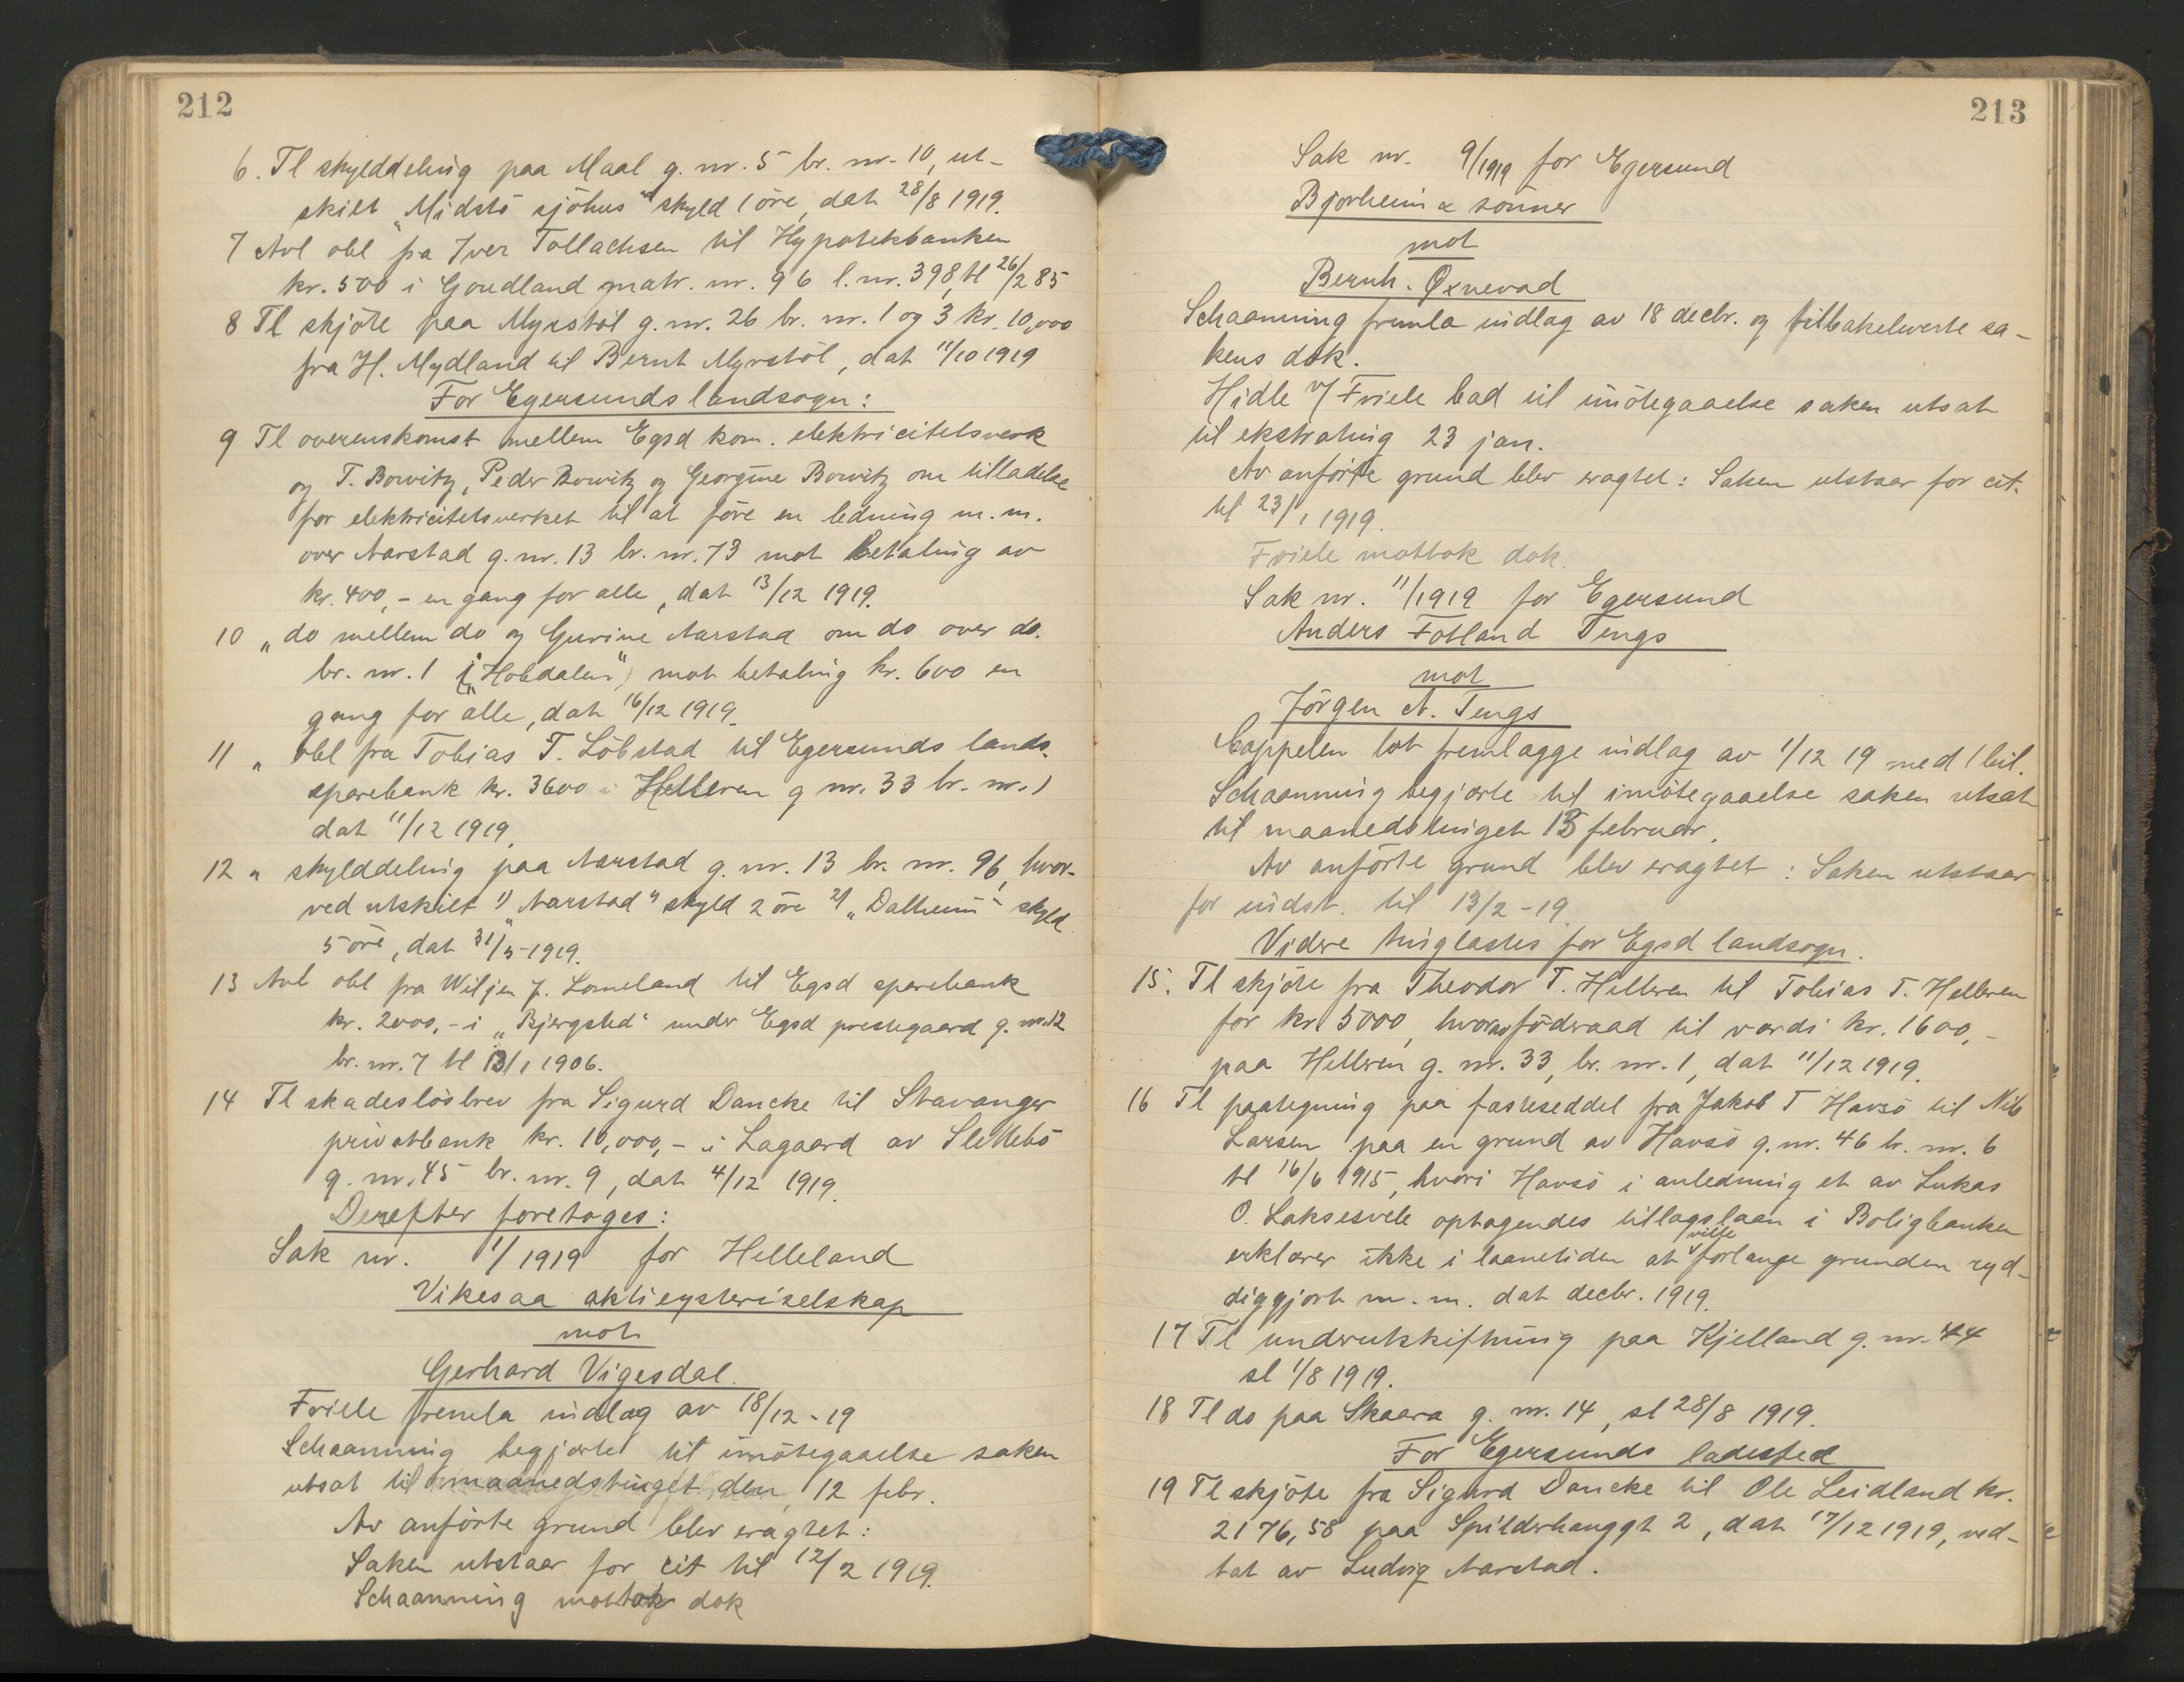 212
6. Tl skylddeling paa Maal g. nr. 5 br. nr. 10, ut-
skilt "Midstö sjöhus" skyld 1 öre, dat 28/8 1919.
7 Avl obl fra Iver Tollachsen til Hypotekbanken
kr. 500 i Goudland matr. nr. 96 l. nr. 398, tl 26/2 85
8 Tl skjöte paa Myrstöl g. nr. 26 br. nr. 1 og 3 kr. 10,000
fra H. Mydland til Bernt Myrstöl, dat 11/10 1919
For Egersunds landsogn:
9 Tl overenskomst mellem Egsd kom. elektricitetsverk
og T. Bowitz, Peder Bowitz og Georgine Bowitz om tilladelse
for elektricitetsverket til at före en ledning m. m.
over Aarstad g. nr. 13 br. nr. 73 mot betaling av
kr. 400,- en gang for alle, dat 13/12 1919.
10 " do mellem do og Gurine Aarstad om do over do.
br. nr. 1 (i "Hobdalen") mot betaling kr. 600 en
gang for alle, dat 16/12 1919.
11 " obl fra Tobias T. Löbstad til Egersunds lands.
sparebank kr. 3600 i Helleren g nr. 33 br. nr. 1
dat 11/12 1919.
12 " skylddeling paa Aarstad g. nr. 13 br. nr. 96, hvor-
ved utskilt 1) "Aarstad" skyld 2 öre 2) "Dalheim" skyld
5 öre, dat 31/5-1919.
13 Avl obl fra Wiljen J. Lomeland til Egsd sparebank
kr. 2000,- i "Bjergsted" under Egsd prestegaard g. nr. 12
br. nr. 7 tl 13/1 1906.
14 Tl skadeslösbrev fra Sigurd Dancke til Stavanger
privatbank kr. 10,000,- i Lagaard av Slettebö
g. nr. 45 br. nr. 9, dat 4/12 1919.
Derefter foretoges:
Sak nr. 1/1919 for Helleland
Vikesaa aktieysteriselskap
mot
Gerhard Vigesdal.
Friele fremla indlæg av 18/12-19
Schaanning begjærte til imötegaaelse saken
utsat til maanedstinget den 12 febr.
Av anförte grund blev eragtet:
Saken utstaar for cit til 12/2 1919.
Schaanning mottok dok
213
Sak nr. 9/1919 for Egersund
Bjorheim & sönner
mot
Bernh. Øxnevad
Schaanning fremla indlæg av 18 decbr. og tilbakeleverte sa-
kens dok.
Hidle v/ Friele bad til imötegaaelse saken utsat
til ekstrating 23 jan.
Av anförte grund blev eragtet: Saken utstaar for cit.
til 23/1 1919.
Friele mottok dok.
Sak nr. 11/1919 for Egersund
Anders Fotland Tengs
mot
Jörgen A. Tengs
Cappelen lot fremlægge indlæg av 1/12 19 med 1 bil.
Schaanning begjærte til imötegaaelse saken utsat
til maanedstinget 13 februar.
Av anförte grund blev eragtet: Saken utstaar
for indst. til 13/2-19.
Videre tinglæstes for Egsd landsogn.
15. Tl skjöte fra Theodor T. Helleren til Tobias T. Helleren
for kr. 5000, hvorav föderaad til værdi kr. 1600,-
paa Helleren g. nr. 33, br. nr. 1, dat 11/12 1919.
16 Tl paategning paa fæsteseddel fra Jakob T Havsö til Nils
Larsen paa en grund av Havsö g. nr. 46 br. nr. 6
tl 16/6 1915, hvori Havsö i anledning et av Lukas
O. Laksesvele optagendes tillægslaan i Boligbanken
erklærer ikke i laanetiden at ville forlange grunden ryd-
diggjort m. m. dat decbr. 1919.
17 Tl underutskiftning paa Kjelland g. nr. 44
sl 1/8 1919.
18 Tl do paa Skaara g. nr. 14, sl 28/8 1919.
For Egersunds ladested
19 Tl skjöte fra Sigurd Dancke til Ole Leidland kr.
2176,58 paa Spilderhauggt 2, dat 17/12 1919, ved-
tat av Ludvig Aarstad.